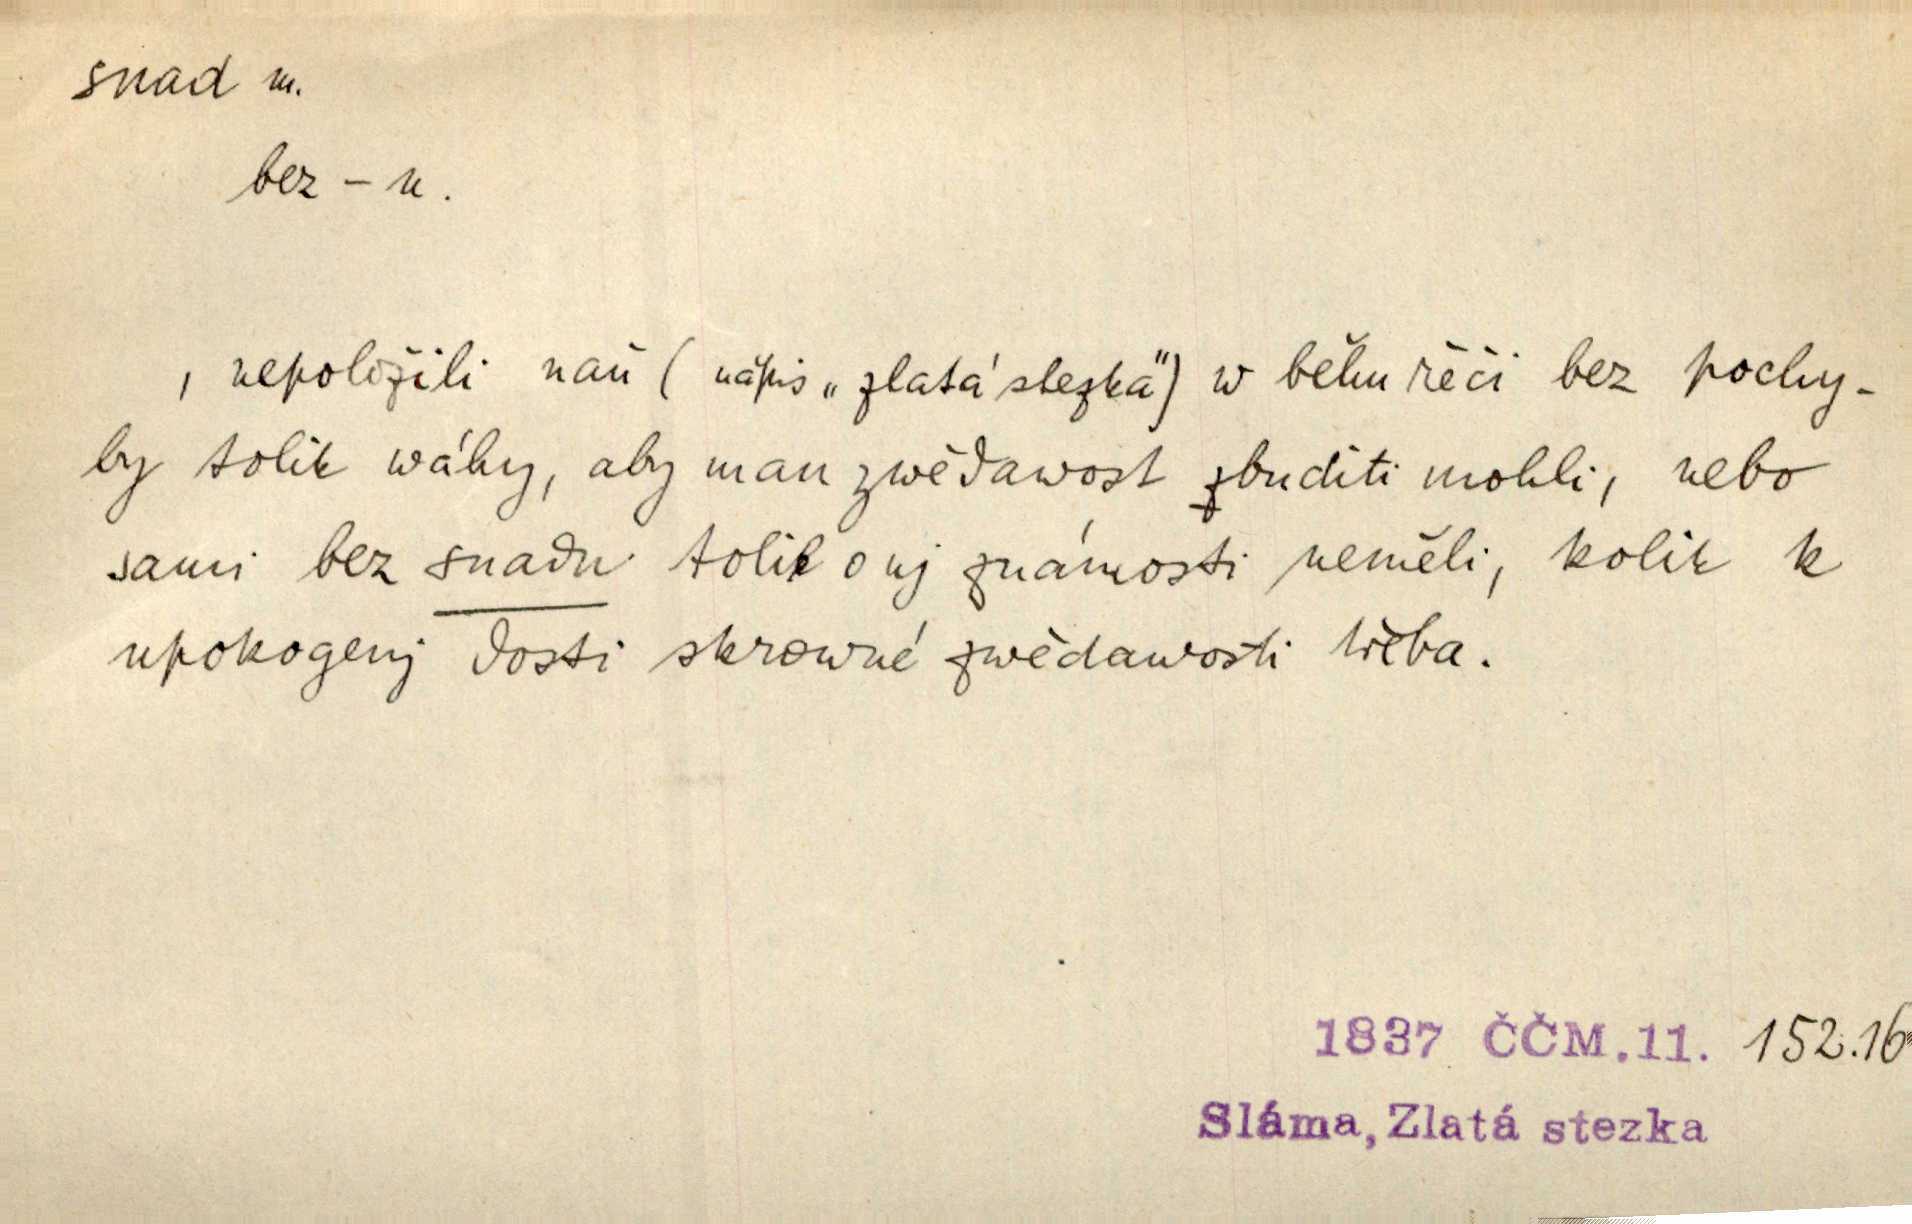 snad m.
bez – u.
, nepoložili naň ( nápis „ zlatá stezka") w běhu řěči bez pochy-
by tolik wáhy, aby man zwědawost zbuditi mohli, nebo
sami bez snadu tolik o nj známosti neměli, kolik k
upokogenj dosti skrowné zwědawosti třeba.
1837 ČČM.11. 152.16
Sláma, Zlatá stezka